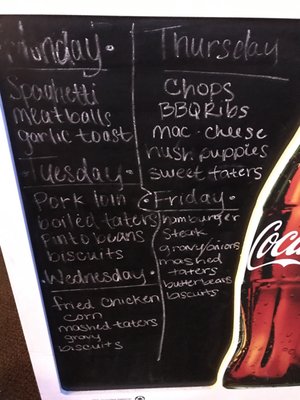 Monday.
Spaghetti
meatballs
garlic toast
Tuesday.
Pork loin
boiled taters
pinto beans
biscuits
Wednesday.
fried chicken
corn
mashed taters
gravy
biscuits
Thursday
Chops
BBQ Ribs
mac · cheese
hush puppies
sweet taters
Friday.
hamburger
steak
gravy/onions
mashed
taters
butterbeans
biscuits
Coca